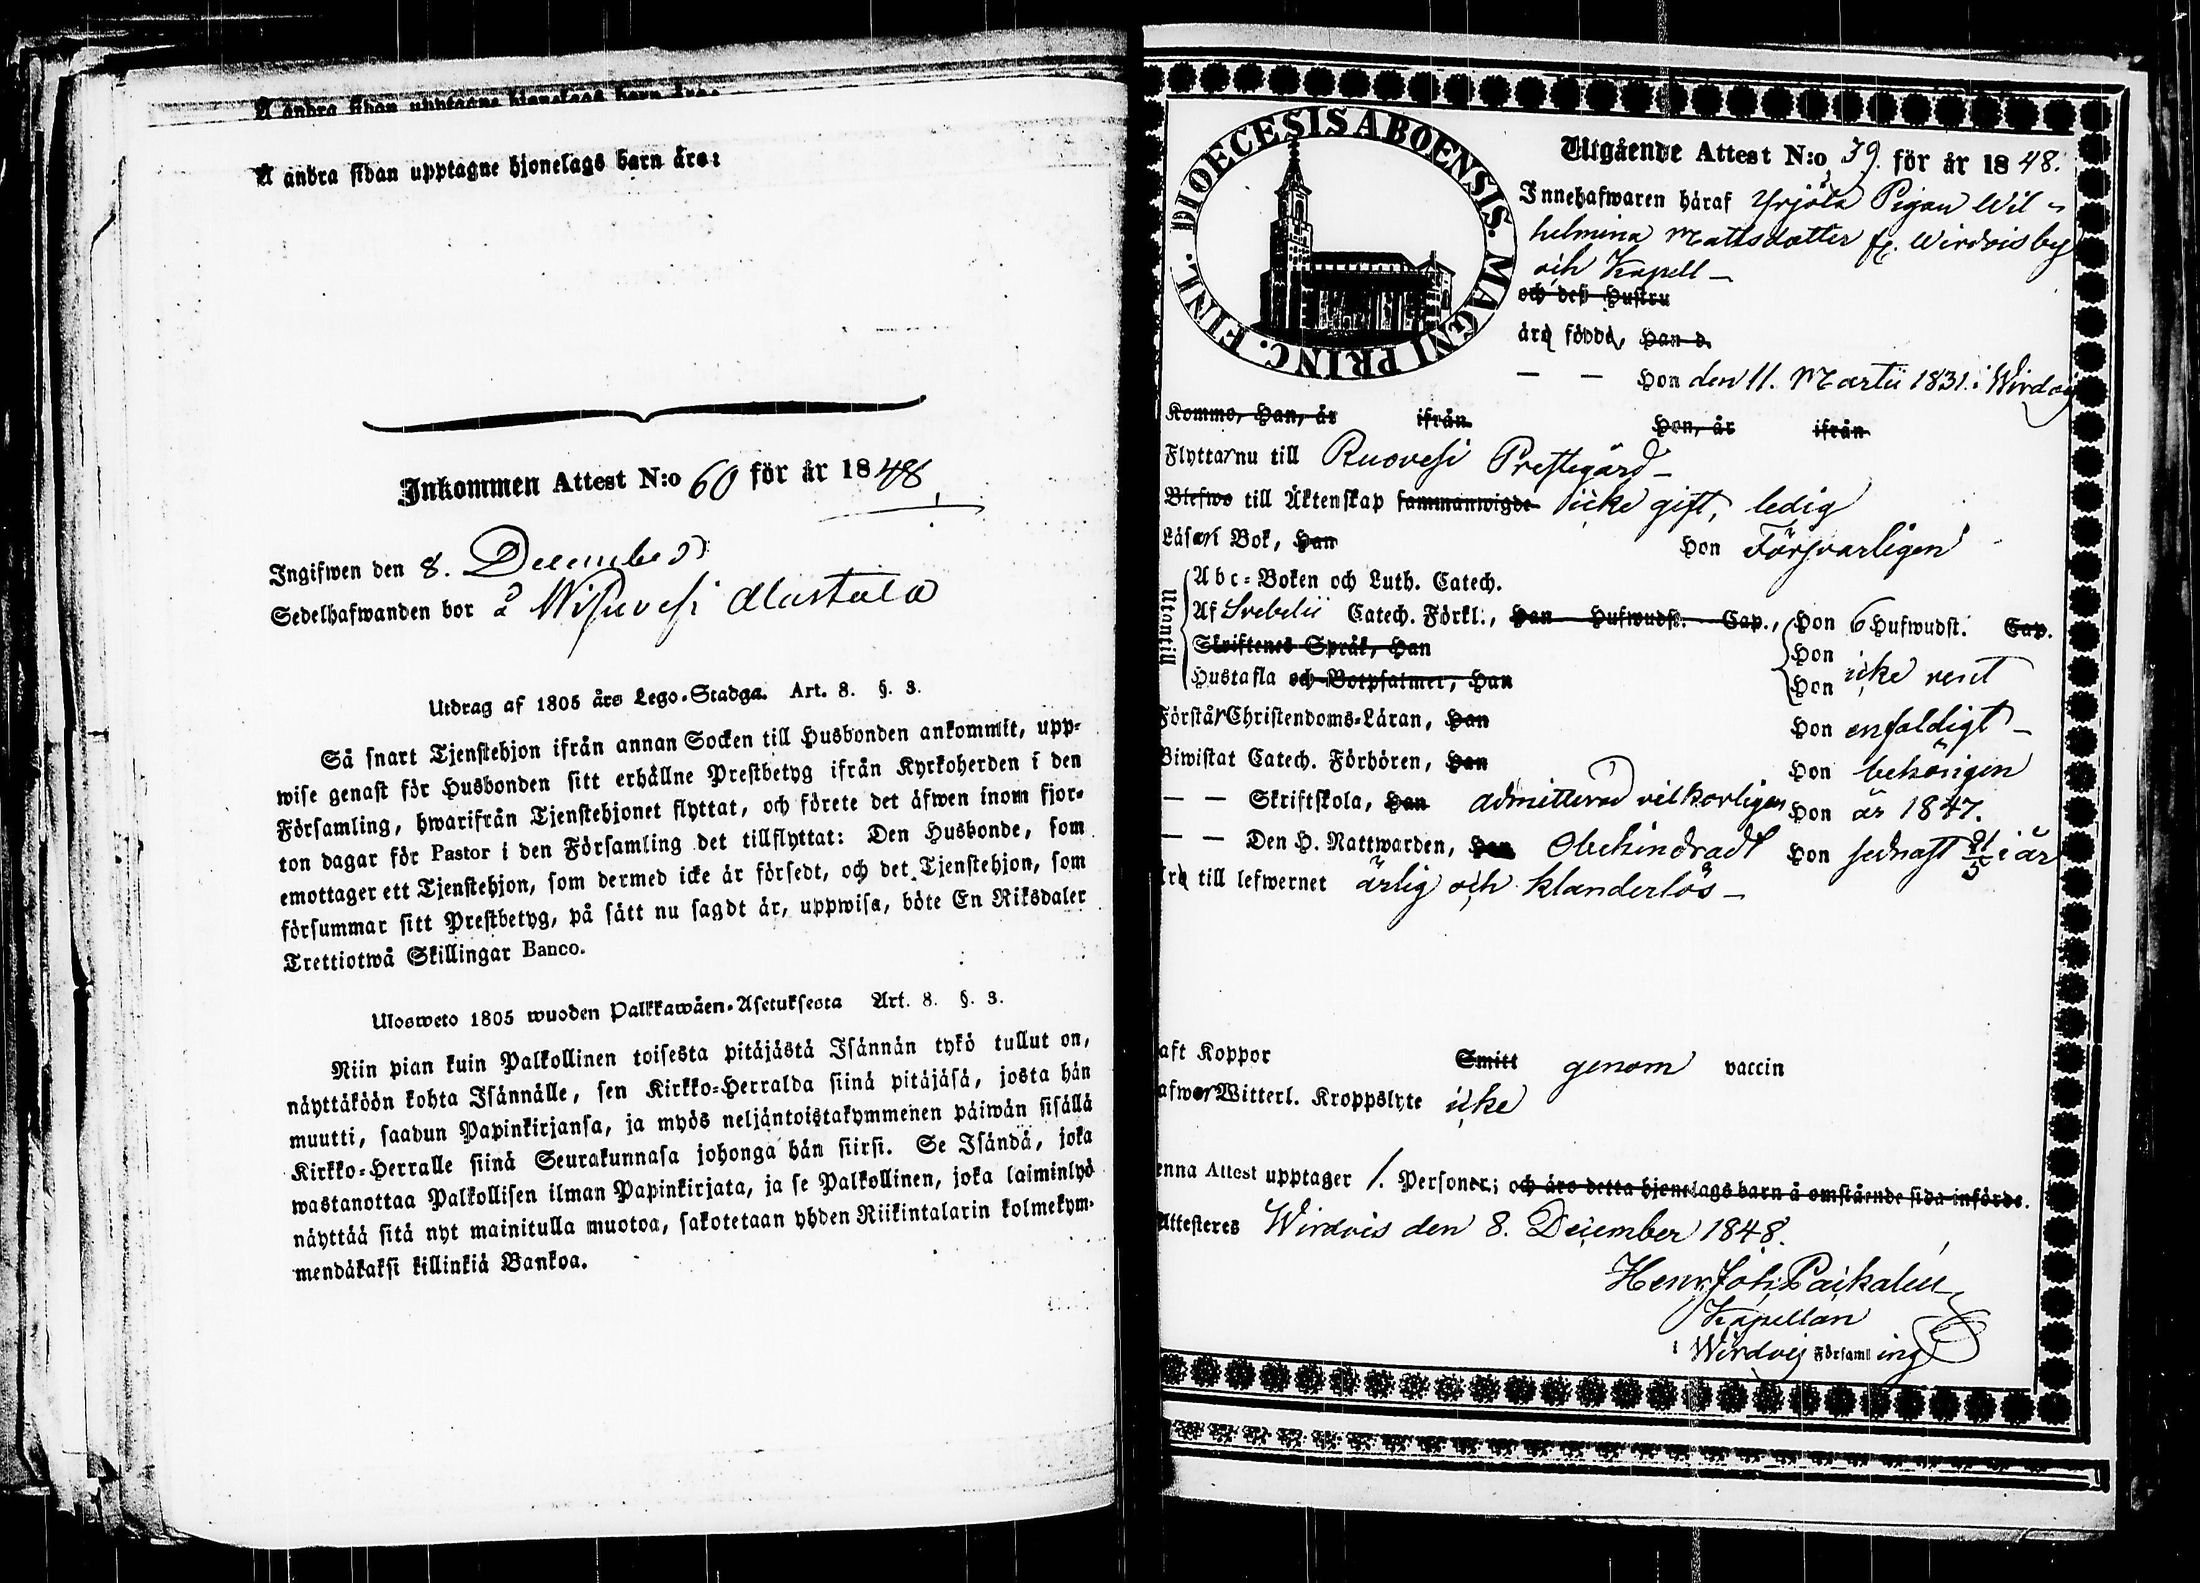 Å andra sidan upptagne hjonelags barn äro:
Å andra sidan upptagne hjonelags barn äro:
Inkommen Attest N:o 60 för år 1848
Ingifwen den 8. December
Sedelhafwanden bor å Wisuvesi Mustala
Utdrag af 1805 års Lego-Stadga. Art. 8. §. 3.
Så snart Tjenstehjon ifrån annan Socken till Husbonden ankommit, upp-
wise genast för Husbonden sitt erhållne Prestbetyg ifrån Kyrkoherden i den
Församling, hwarifrån Tjenstehjonet flyttat, och förete det äfwen inom fjor-
ton dagar för Pastor i den Församling det tillflyttat: Den Husbonde, som
emottager ett Tjenstehjon, som dermed icke är försedt, och det Tjenstehjon, som
försummar sitt Prestbetyg, på sätt nu sagdt är, uppwisa, böte En Riksdaler
Trettiotwå Skillingar Banco.
Ulosweto 1805 wuoden Palkkawäen-Asetuksesta Art. 8. §. 3.
Niin pian kuin Palkollinen toisesta pitäjästä Isännän tykö tullut on,
näyttäköön kohta Isännälle, sen Kirkko-Herralda siinä pitäjäsä, josta hän
muutti, saadun Papinkirjansa, ja myös neljäntoistakymmenen päiwän sisällä
Kirkko-Herralle siinä Seurakunnasa johonga hän siirsi. Se Isändä, joka
wastanottaa Palkollisen ilman Papinkirjata, ja se Palkollinen, joka laiminlyö
näyttää sitä nyt mainitulla muotoa, sakotetaan yhden Riikintalarin kolmekym-
mendäkaksi killinkiä Bankoa.
DIOECESIS ABOENSIS. MAGNI PRINC. FINL.
Utgående Attest N:o 39. för år 1848.
Innehafwaren häraf Yrjölä Pigan Wil-
helmina Mattsdotter fr. Wirdois by
och Kapell
och dess Hustru
äro födde, Han d.
— — Hon den 11. Martii 1831. i Wirdois
Komme, Han, år ifrån Hon, år ifrån
Flyttar nu till Ruovesi Prestegård
Blefwo till Äktenskap sammanwigde icke gift, ledig
Läser i Bok, Han Hon Försvarligen
Utantill
Abc-Boken och Luth. Catech.
Af Svebelii Catech. Förkl., Han Hufwudst. Cap., Hon 6 Hufwudst. Cap.
Skriftenes Språk, Han Hon
Hustafla och Botpsalmer, Han Hon icke rent
Förstår Christendoms-Läran, Han Hon enfaldigt
Biwistat Catech. Förhören, Han Hon behörigen
— — Skriftskola, Han admitterad vilkorligen Hon år 1847.
— — Den H. Nattwarden, Han Obehindradt Hon sednast 21/5 i år
äro till lefwernet ärlig och klanderlös
aft Koppor Smitt genom vaccin
afwer Witterl. Kroppslyte icke
enna Attest upptager 1. Personer; och äro detta hjonelags barn å omstående sida införde.
Attesteres Wirdois den 8. December 1848.
Henr. Joh. Paikalén
Kapellan
i Wirdois Församling